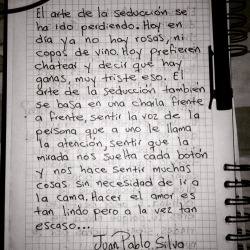 El arte de la seducción se
ha ido perdiendo. Hoy en
día ya no hay rosas, ni
copas de vino. Hoy prefieren
chatear y decir que hay
ganas, muy triste eso. El
arte de la seducción también
se basa en una charla frente
a frente, sentir la voz de la
persona que a uno le llama
la atención, sentir que la
mirada nos suelta cada botón
y nos hace sentir muchas
cosas sin necesidad de ir a
la cama. Hacer el amor es
tan lindo pero a la vez tan
escaso...
Juan Pablo Silva